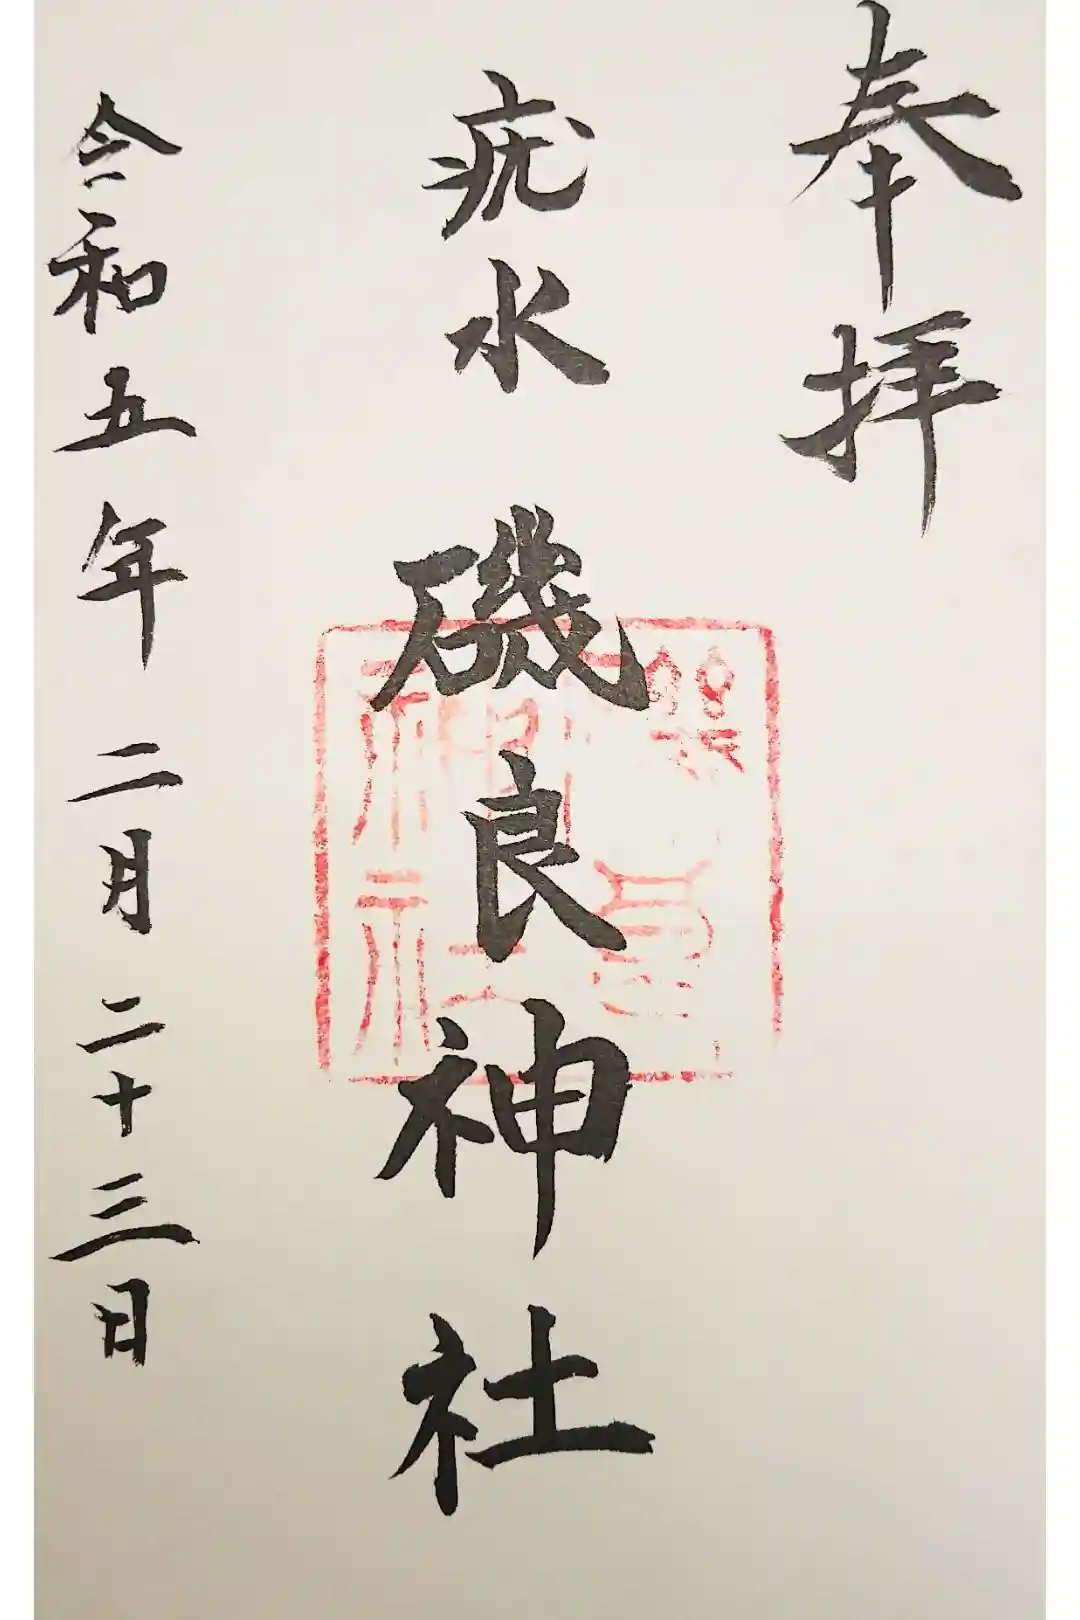 奉拝
疣水
磯良神社
磯良神社
令和五年二月二十三日